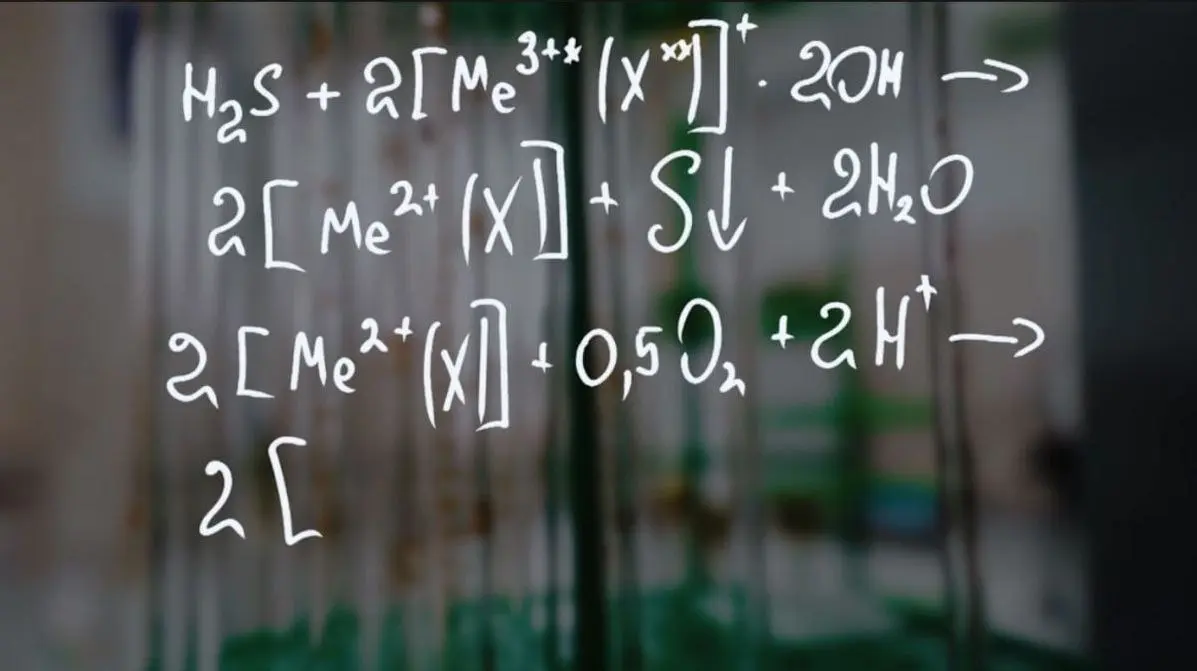 H₂S + 2[Me³⁺*(X**)]⁺ · 2OH →
2[Me²⁺(X)] + S↓ + 2H₂O
2[Me²⁺(X)] + 0,5O₂ + 2H⁺ →
2[